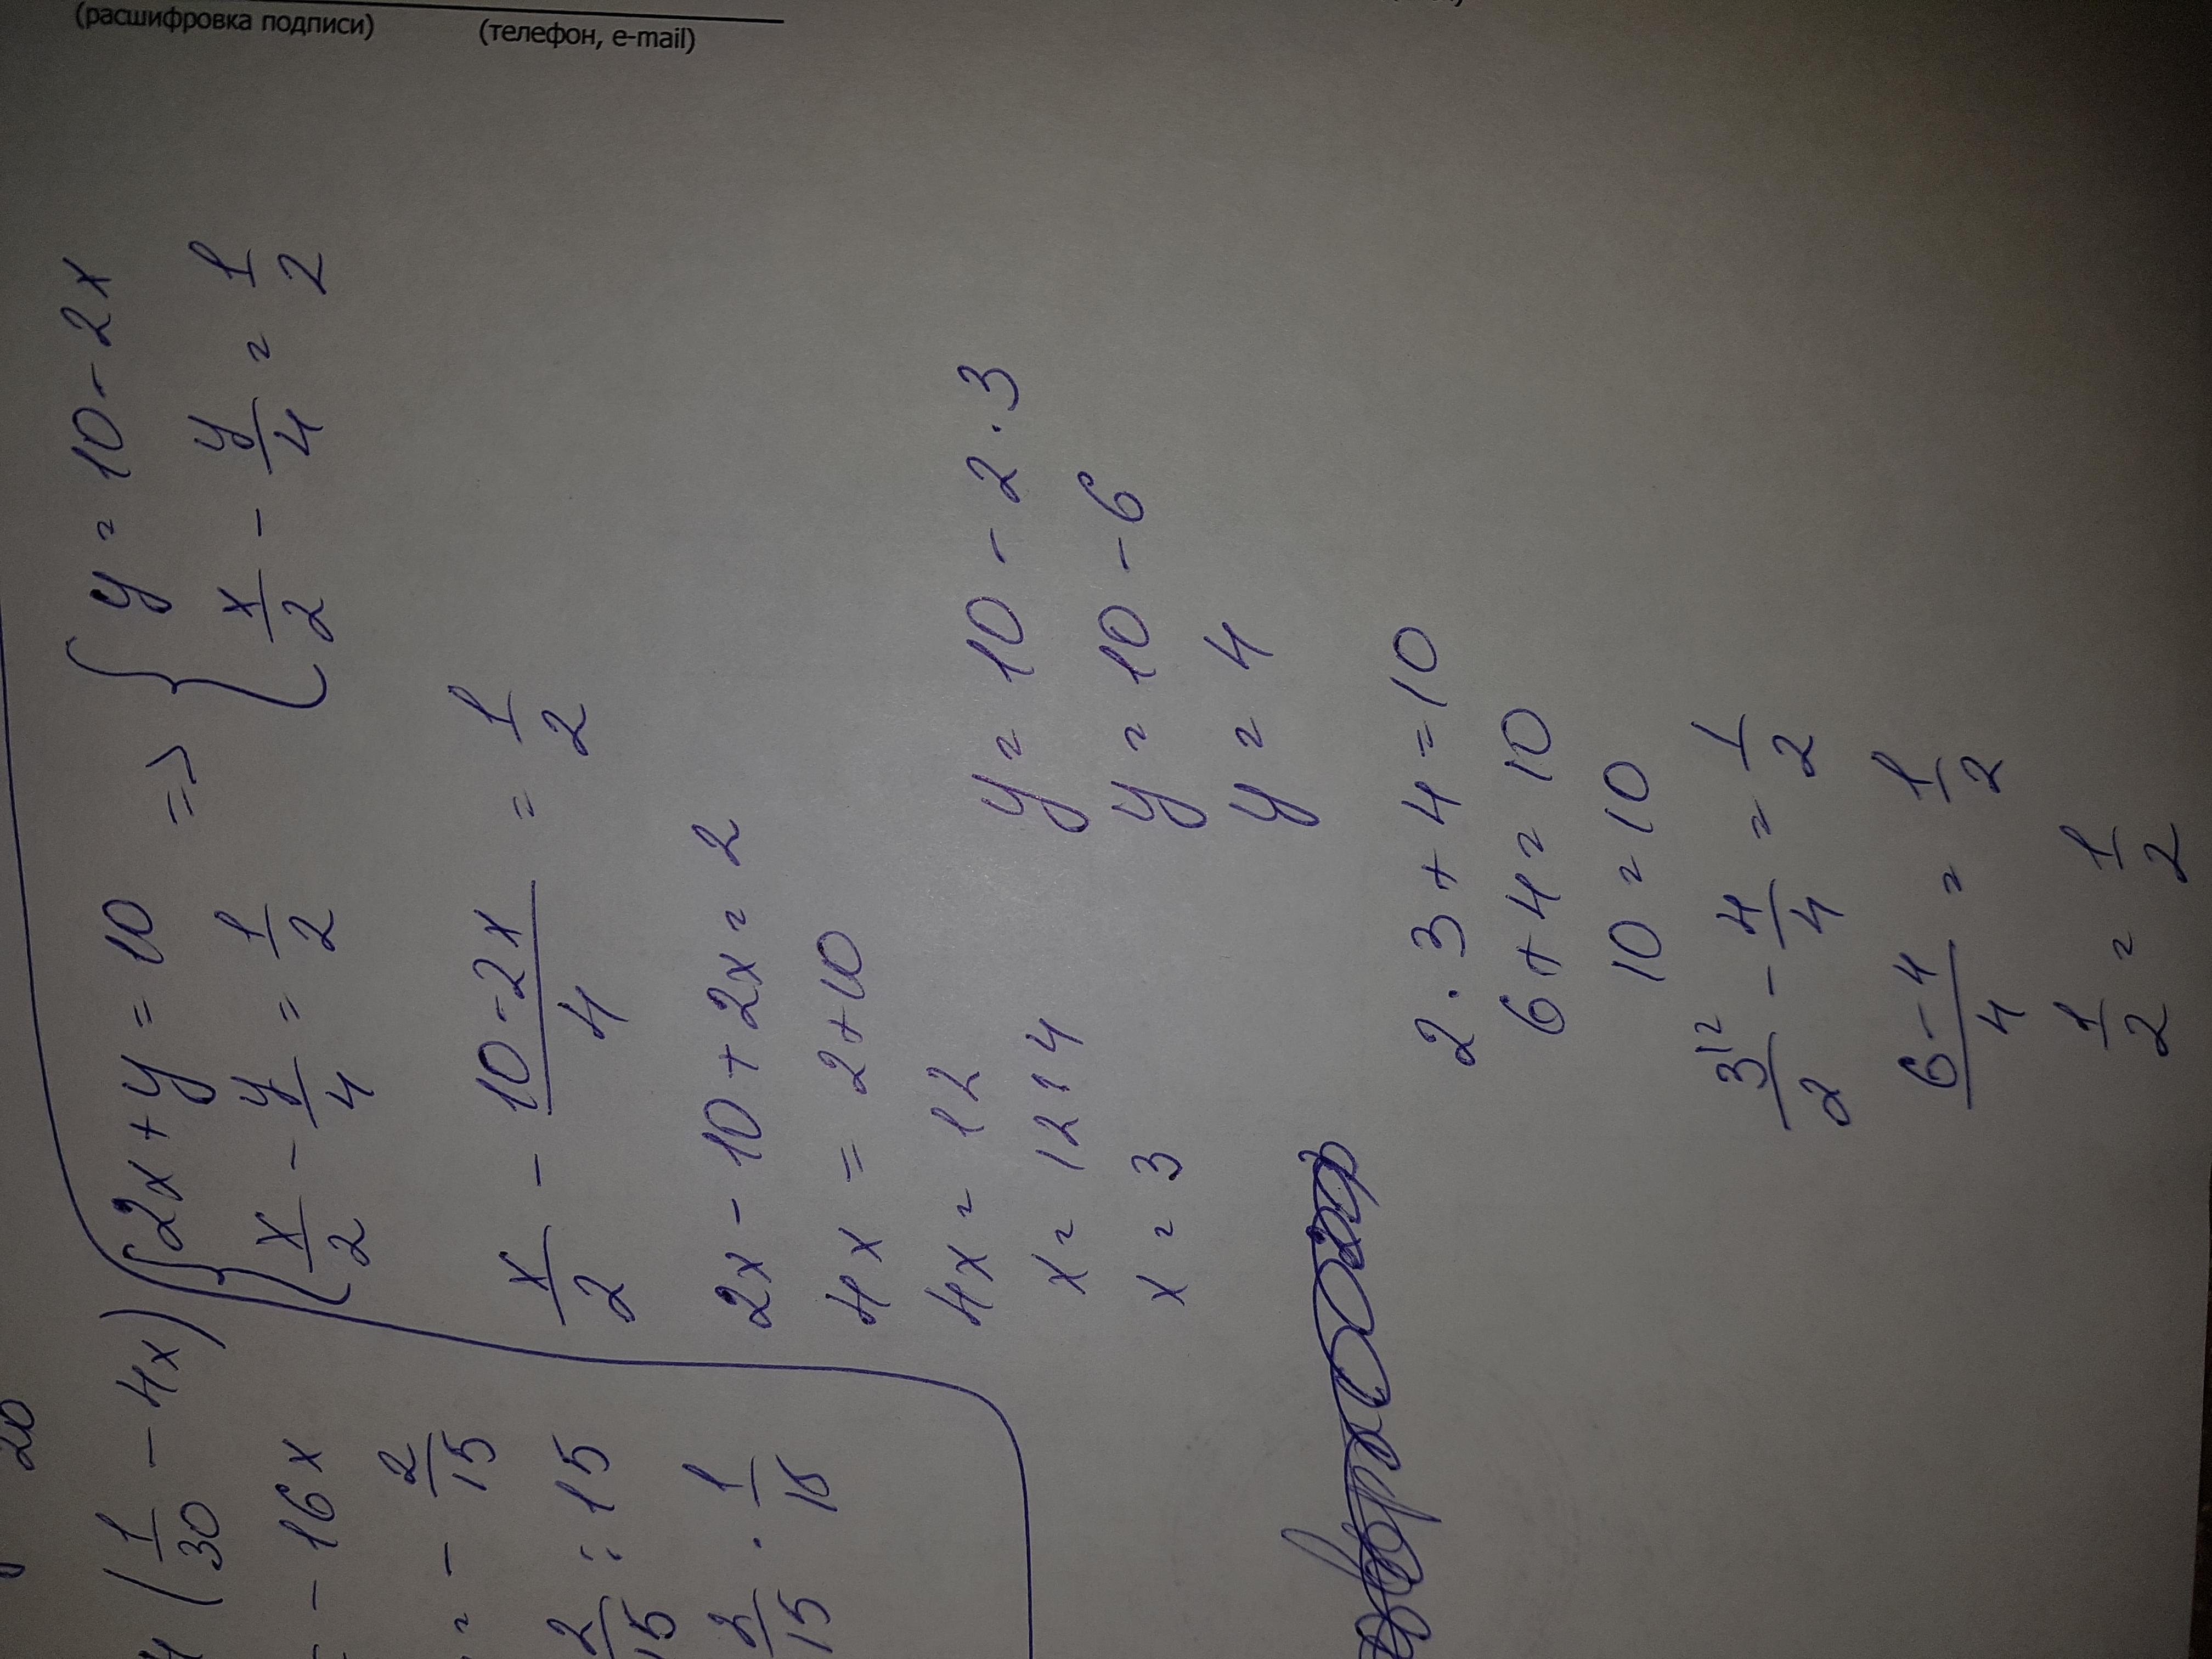 (расшифровка подписи) (телефон, e-mail)
20
4 (1/30 - 4x)
- 16x
= - 2/15
2/15 : 15
2/15 · 1/15
{ 2x + y = 10 => { y = 10 - 2x
x/2 - y/4 = 1/2 x/2 - y/4 = 1/2
x/2 - (10 - 2x)/4 = 1/2
2x - 10 + 2x = 2
4x = 2 + 10
4x = 12
x = 12 : 4
x = 3
y = 10 - 2 · 3
y = 10 - 6
y = 4
2 · 3 + 4 = 10
6 + 4 = 10
10 = 10
3\2/2 - 4/4 = 1/2
(6 - 4)/4 = 1/2
1/2 = 1/2